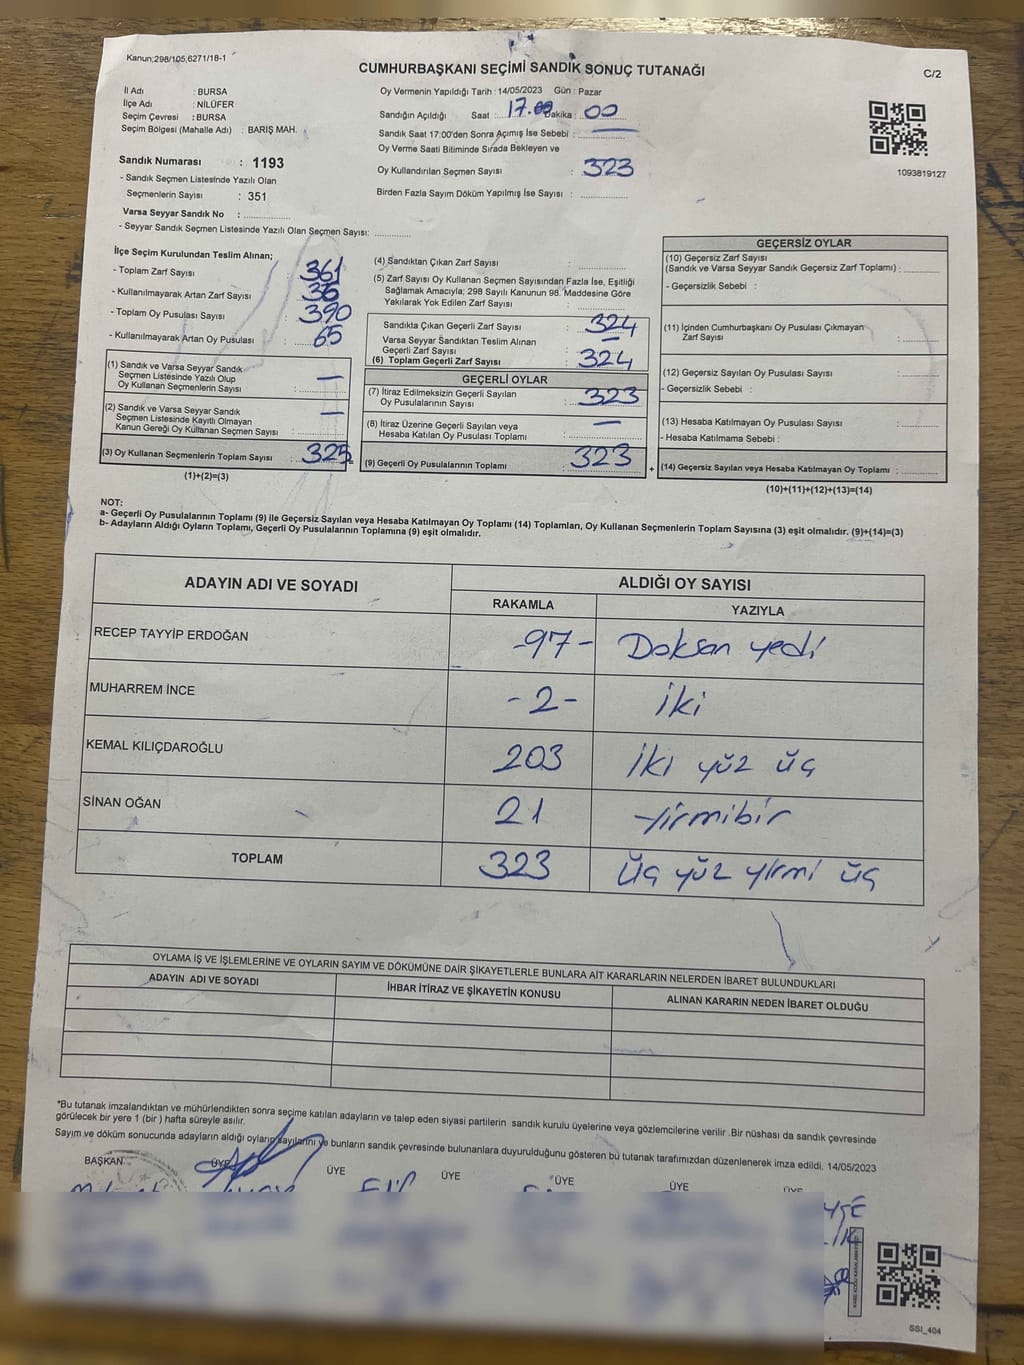 Kanun;298/105;6271/18-1
CUMHURBAŞKANI SEÇİMİ SANDIK SONUÇ TUTANAĞI
C/2
İl Adı : BURSA
İlçe Adı : NİLÜFER
Seçim Çevresi : BURSA
Seçim Bölgesi (Mahalle Adı) : BARIŞ MAH.
Sandık Numarası : 1193
- Sandık Seçmen Listesinde Yazılı Olan
Seçmenlerin Sayısı : 351
Varsa Seyyar Sandık No :
- Seyyar Sandık Seçmen Listesinde Yazılı Olan Seçmen Sayısı:
Oy Vermenin Yapıldığı Tarih : 14/05/2023 Gün : Pazar
Sandığın Açıldığı Saat : 17.00 Dakika : 00
Sandık Saat 17:00'den Sonra Açımış İse Sebebi :
Oy Verme Saati Bitiminde Sırada Bekleyen ve
Oy Kullandırılan Seçmen Sayısı : 323
Birden Fazla Sayım Döküm Yapılmış İse Sayısı :
1093819127
İlçe Seçim Kurulundan Teslim Alınan;
- Toplam Zarf Sayısı : 361
- Kullanılmayarak Artan Zarf Sayısı : 36
- Toplam Oy Pusulası Sayısı : 390
- Kullanılmayarak Artan Oy Pusulası : 65
(1) Sandık ve Varsa Seyyar Sandık
Seçmen Listesinde Yazılı Olup
Oy Kullanan Seçmenlerin Sayısı : —
(2) Sandık ve Varsa Seyyar Sandık
Seçmen Listesinde Kayıtlı Olmayan
Kanun Gereği Oy Kullanan Seçmen Sayısı : —
(3) Oy Kullanan Seçmenlerin Toplam Sayısı : 325
(1)+(2)=(3)
(4) Sandıktan Çıkan Zarf Sayısı :
(5) Zarf Sayısı Oy Kullanan Seçmen Sayısından Fazla İse, Eşitliği
Sağlamak Amacıyla; 298 Sayılı Kanunun 98. Maddesine Göre
Yakılarak Yok Edilen Zarf Sayısı :
Sandıkta Çıkan Geçerli Zarf Sayısı : 324
Varsa Seyyar Sandıktan Teslim Alınan
Geçerli Zarf Sayısı : —
(6) Toplam Geçerli Zarf Sayısı : 324
GEÇERLİ OYLAR
(7) İtiraz Edilmeksizin Geçerli Sayılan
Oy Pusulalarının Sayısı : 323
(8) İtiraz Üzerine Geçerli Sayılan veya
Hesaba Katılan Oy Pusulası Toplamı : —
(9) Geçerli Oy Pusulalarının Toplamı : 323
+
GEÇERSİZ OYLAR
(10) Geçersiz Zarf Sayısı
(Sandık ve Varsa Seyyar Sandık Geçersiz Zarf Toplamı) :
- Geçersizlik Sebebi :
(11) İçinden Cumhurbaşkanı Oy Pusulası Çıkmayan
Zarf Sayısı :
(12) Geçersiz Sayılan Oy Pusulası Sayısı :
- Geçersizlik Sebebi :
(13) Hesaba Katılmayan Oy Pusulası Sayısı :
- Hesaba Katılmama Sebebi :
(14) Geçersiz Sayılan veya Hesaba Katılmayan Oy Toplamı :
(10)+(11)+(12)+(13)=(14)
NOT:
a- Geçerli Oy Pusulalarının Toplamı (9) ile Geçersiz Sayılan veya Hesaba Katılmayan Oy Toplamı (14) Toplamları, Oy Kullanan Seçmenlerin Toplam Sayısına (3) eşit olmalıdır. (9)+(14)=(3)
b- Adayların Aldığı Oyların Toplamı, Geçerli Oy Pusulalarının Toplamına (9) eşit olmalıdır.
ADAYIN ADI VE SOYADI ALDIĞI OY SAYISI
RAKAMLA YAZIYLA
RECEP TAYYİP ERDOĞAN -97- Doksan yedi
MUHARREM İNCE -2- İki
KEMAL KILIÇDAROĞLU 203 İki yüz üç
SİNAN OĞAN 21 Yirmibir
TOPLAM 323 Üç yüz yirmi üç
OYLAMA İŞ VE İŞLEMLERİNE VE OYLARIN SAYIM VE DÖKÜMÜNE DAİR ŞİKAYETLERLE BUNLARA AİT KARARLARIN NELERDEN İBARET BULUNDUKLARI
ADAYIN ADI VE SOYADI İHBAR İTİRAZ VE ŞİKAYETİN KONUSU ALINAN KARARIN NEDEN İBARET OLDUĞU
*Bu tutanak imzalandıktan ve mühürlendikten sonra seçime katılan adayların ve talep eden siyasi partilerin sandık kurulu üyelerine veya gözlemcilerine verilir .Bir nüshası da sandık çevresinde
görülecek bir yere 1 (bir ) hafta süreyle asılır.
Sayım ve döküm sonucunda adayların aldığı oyların sayılarını ve bunların sandık çevresinde bulunanlara duyurulduğunu gösteren bu tutanak tarafımızdan düzenlenerek imza edildi. 14/05/2023
BAŞKAN ÜYE ÜYE ÜYE ÜYE ÜYE ÜYE
SSI_404